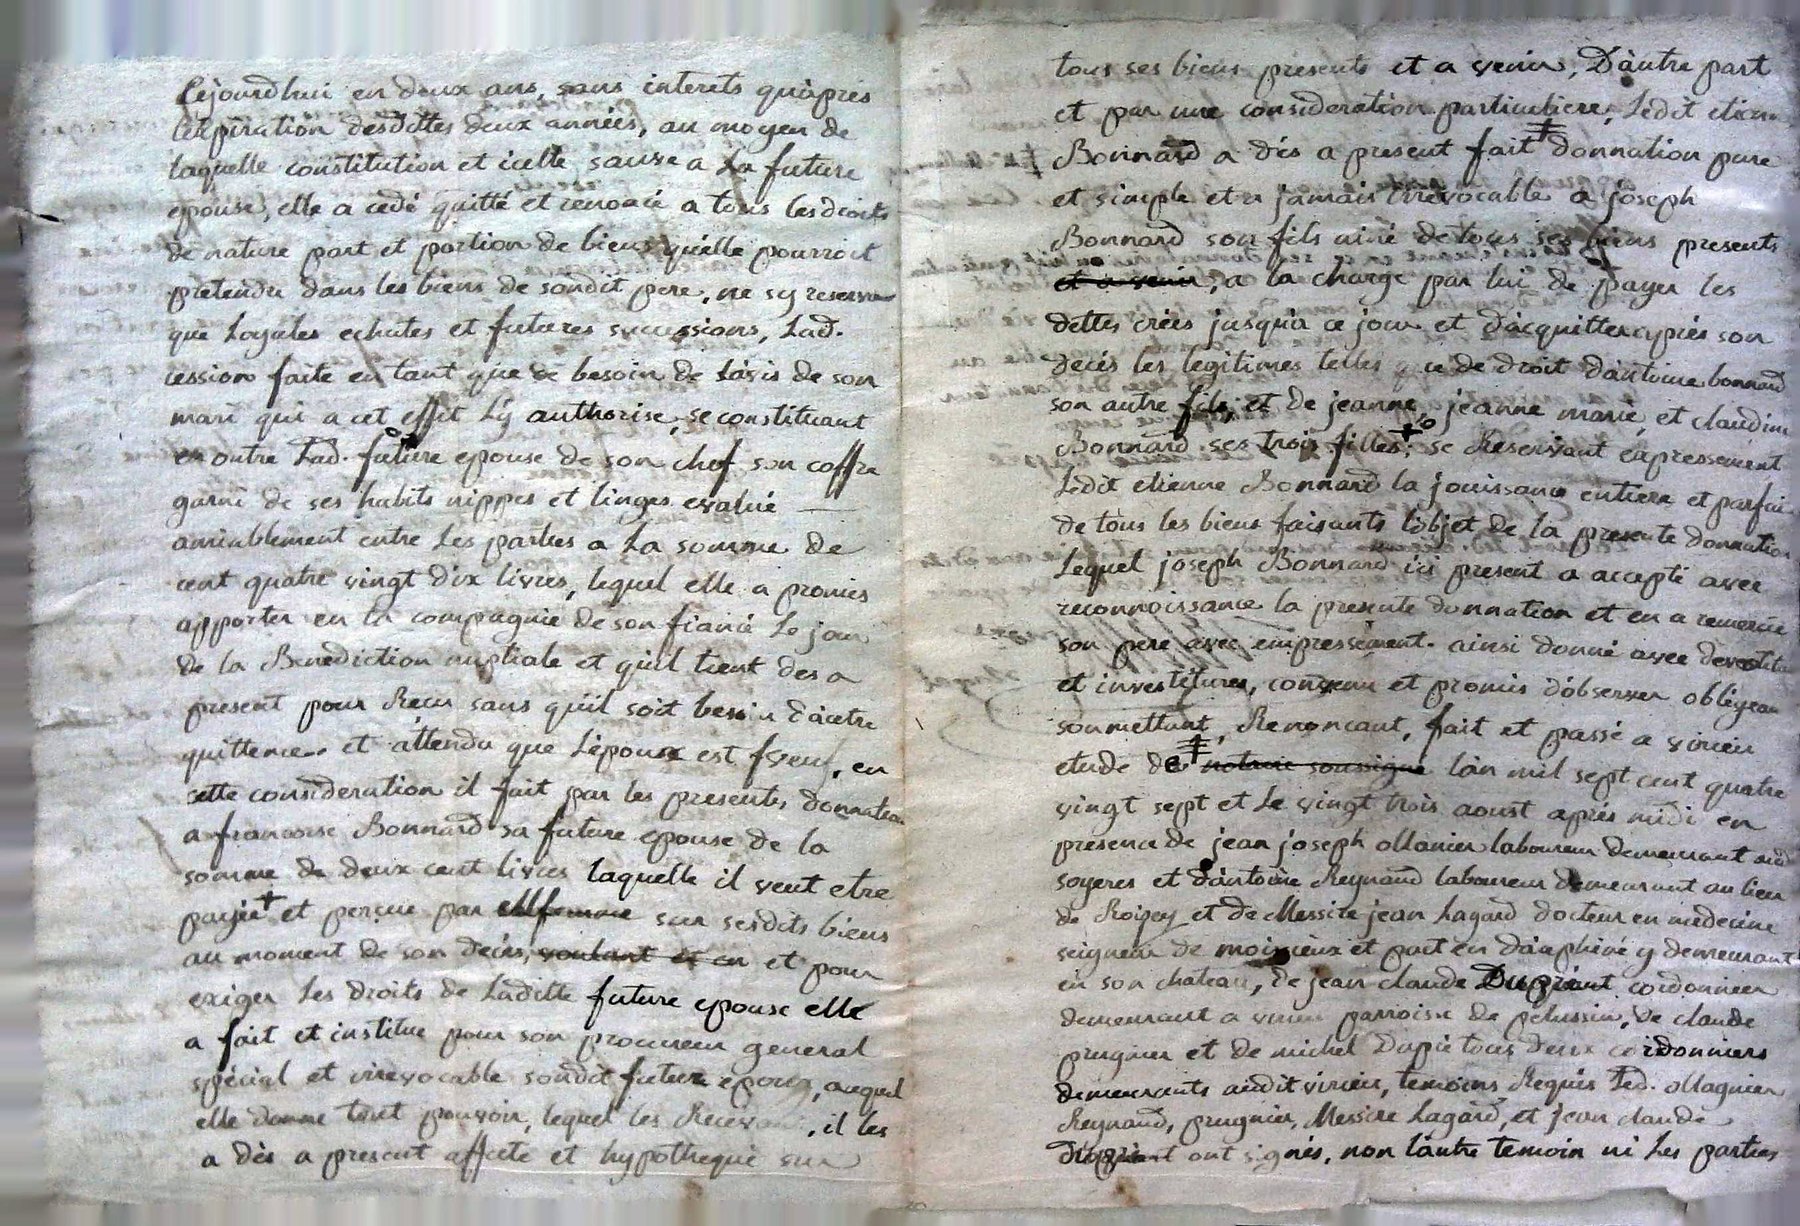 Cejourdhui en deux ans, sans interets quàpres
lexpiration desdittes deux années, au moyen de
laquelle constitution et icelle sauve a La future
epouse, elle a cedé quitté et renoncé a tous les droits
de nature part et portion de biens quelle pourroit
pretendre dans les biens de sondit pere, ne sy reservant
que Loyales echutes et futures successions, Lad.
cession faite en tant que de besoin de Làvis de son
mari qui a cet effet Ly authorise, se constituant
en outre Lad. future epouse de son chef son coffre
garni de ses habits nippes et linges evalué
amiablement entre Les parties a La somme de
cent quatre vingt dix livres, lequel elle a promis
apporter en la compagnie de son fiancé Le jour
de la Benediction nuptiale et quil tient des a
present pour Recu sans quil soit besoin dàutre
quittence. et àttendu que Lépoux est f veuf, en
cette consideration il fait par les presentes donnation
a francoise Bonnard sa future epouse de la
somme de deux cent livres laquelle il veut etre
payée + et perçue par elle femme sur sesdits biens
au moment de son décés, voulant et en et pour
exiger Les droits de Laditte future epouse elle
a fait et institue pour son procureur general
spécial et irrevocable sondit futur epoux, auquel
elle donne tout pouvoir, lequel les Recevant, il les
a dès a present affecté et hypothequé sur
tous ses biens presents et a venir, Dàutre part
et par une consideration particuliere, Ledit etienne
Bonnard a dés a present fait ‡ donnation pure
et simple et a jamais irrevocable a joseph
Bonnard son fils ainé de tous ses biens presents
et a venir, a la charge par lui de payer les
dettes crées jusquà ce jour et dàcquitter apiés son
decés les legitimes telles que de droit dàntoine bonnard
son autre fils, et de jeanne, jeanne marie, et claudine
Bonnard ses trois filles; + se Reservant expressement
Ledit etienne Bonnard la jouissance entiere et parfaite
de tous les biens faisants lobjet de la presente donnation
Lequel joseph Bonnard ici present a accepté avec
reconnoissance la presente donnation et en a remercié
son pere avec empressement. ainsi donné avec devestitures
et investitures, convenu et promis dobserver obligeant
soumettant, Renoncant, fait et passé a virieu
etude de ‡ notaire soussigné làn mil sept cent quatre
vingt sept et Le vingt trois aoust aprés midi en
presence de jean joseph ollanier laboureur demeurant aud
soyeres et dàntoine Reynaud laboureur demeurant au lieu
de Roisey et de Messire jean Lagard docteur en medecine
seigneur de moirieux et part en dàuphiné y demeurant
en son chateau, de jean claude Dupiant cordonnier
demeurant a virieu parroisse de pelussin, de claude
prugnier et de michel Dupie tous deux cordonniers
demeurants audit virieu, temoins Requis Led. ollagnier
Reynaud, prugnier, Messire Lagard, et jean claude
Dupiant ont signés, non làutre temoin ni Les parties